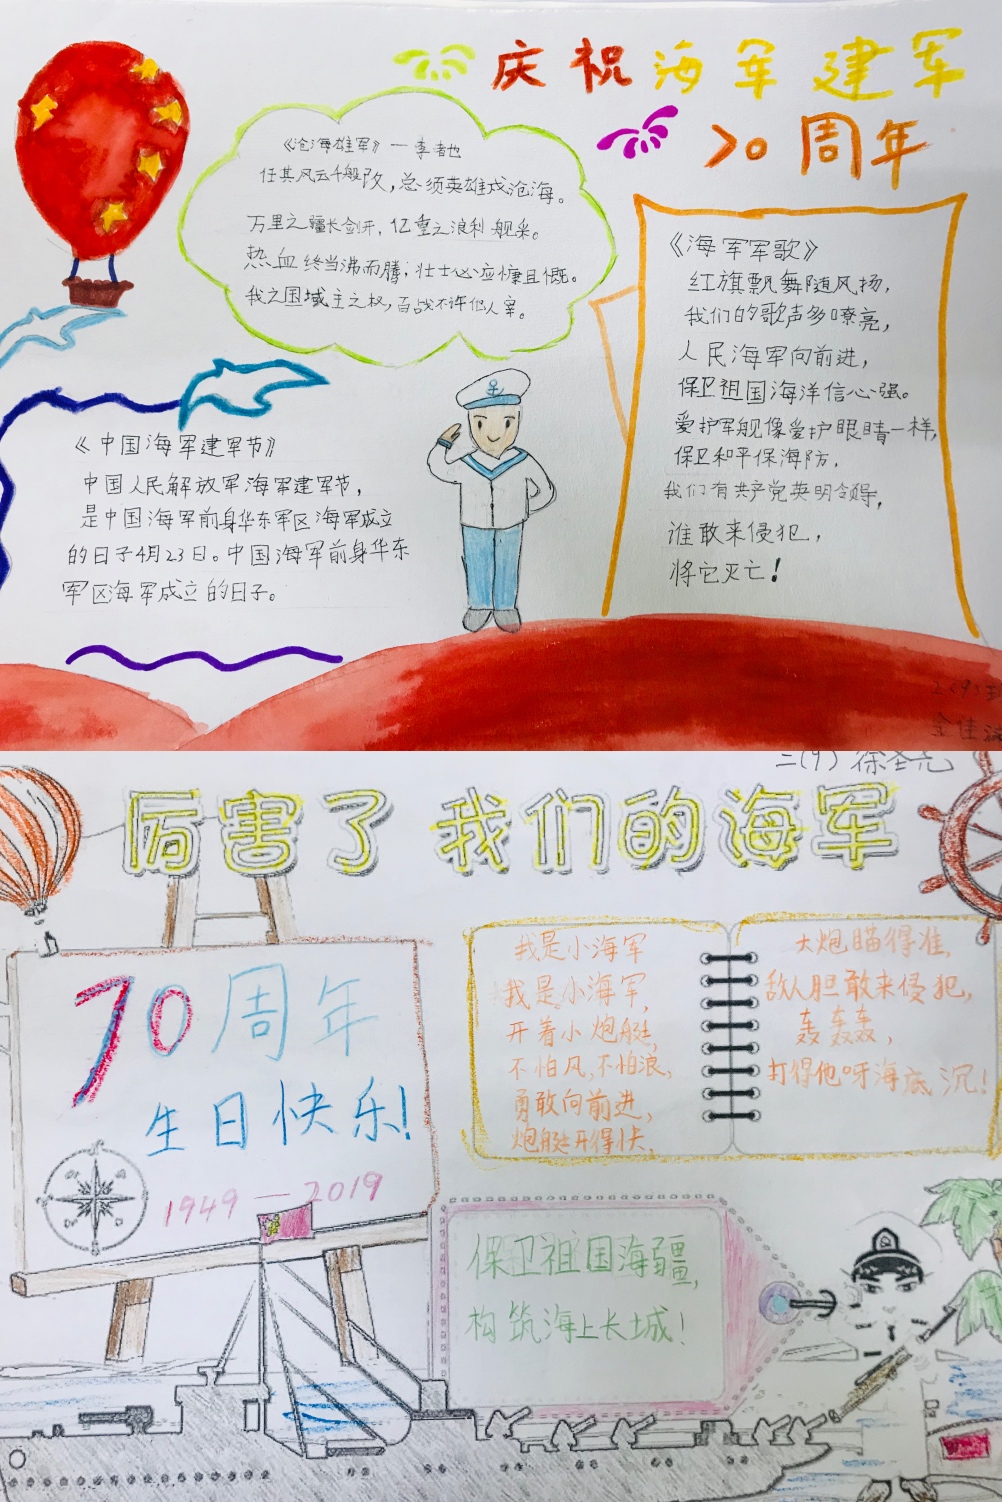 庆祝海军建军
70周年
《沧海雄军》一李浩也
任其风云千般改，总须英雄戍沧海。
万里之疆长剑开，亿重之浪利舰采。
热血终当沸而腾，壮士必应慷且慨。
我之国域主之权，百战不许他人宰。
《海军军歌》
红旗飘舞随风扬，
我们的歌声多嘹亮，
人民海军向前进，
保卫祖国海洋信心强。
爱护军舰像爱护眼睛一样，
保卫和平保海防，
我们有共产党英明领导，
谁敢来侵犯，
将它灭亡！
《中国海军建军节》
中国人民解放军海军建军节，
是中国海军前身华东军区海军成立
的日子4月23日。中国海军前身华东
军区海军成立的日子。
厉害了我们的海军
70周年
生日快乐！
1949—2019
我是小海军
我是小海军，
开着小炮艇，
不怕风，不怕浪，
勇敢向前进，
炮艇开得快，
大炮瞄得准，
敌人胆敢来侵犯，
轰轰轰，
打得他呀海底沉！
保卫祖国海疆，
构筑海上长城！